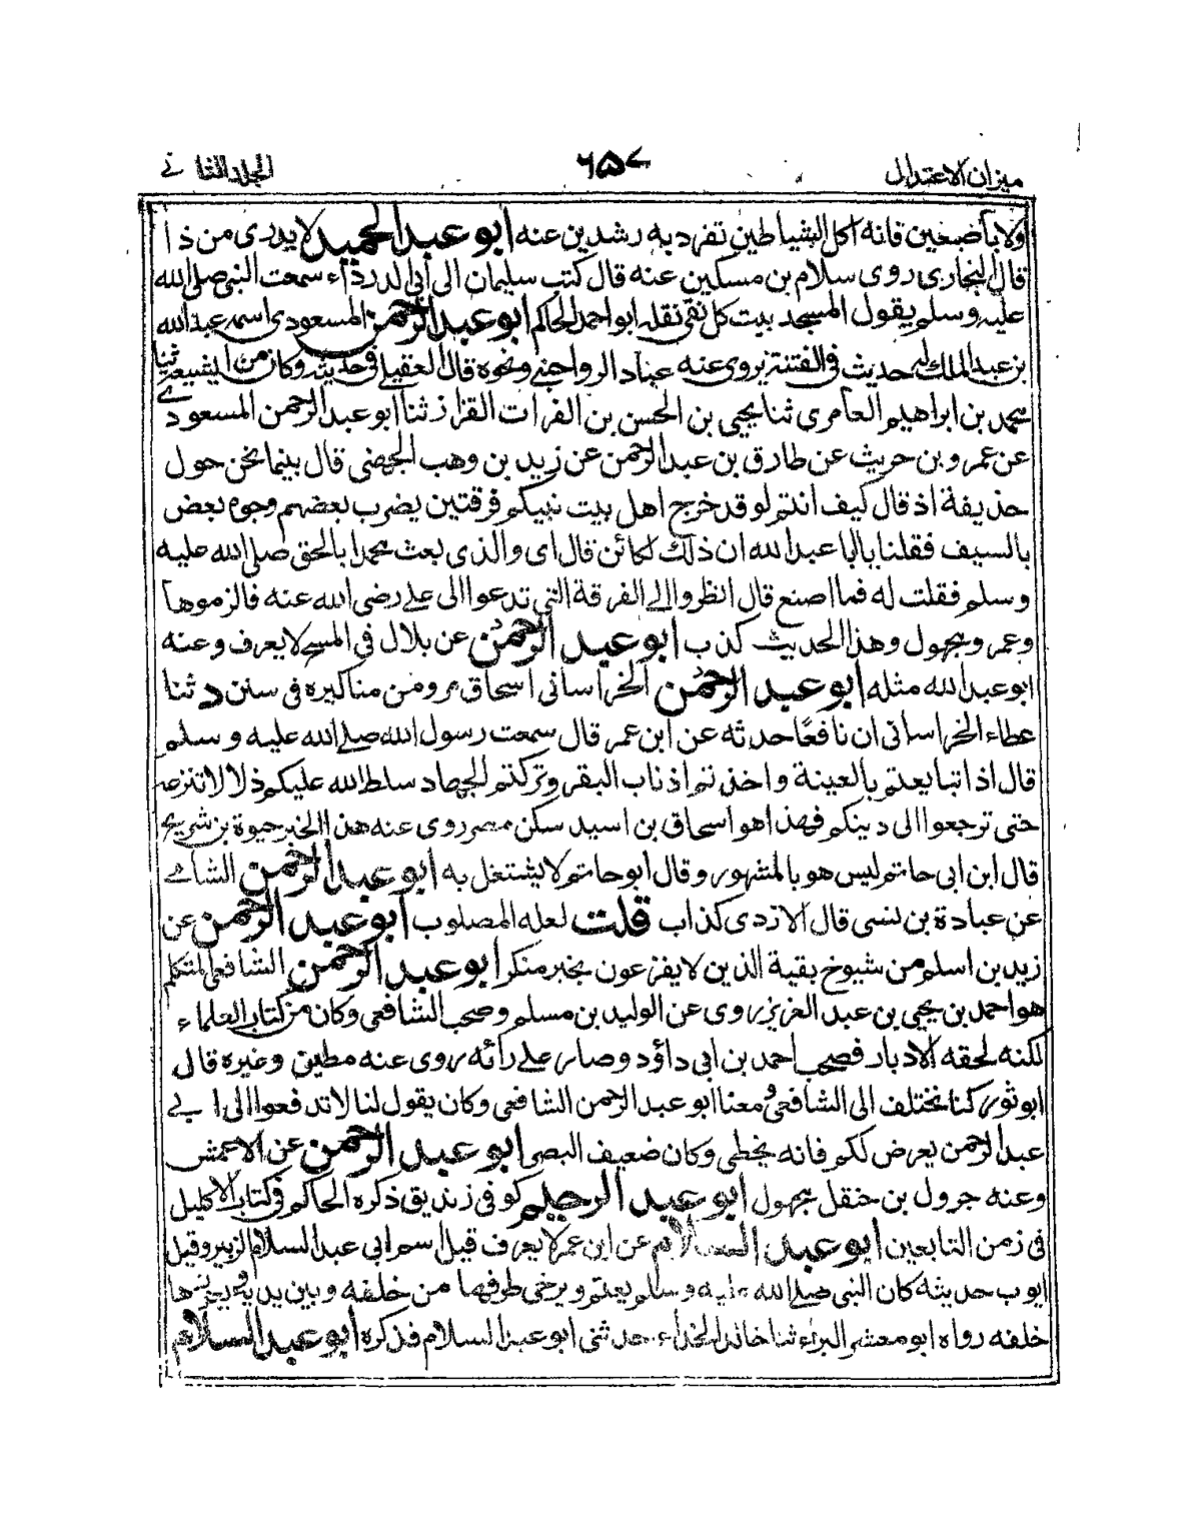 ميزان الاعتدال
٦٥٧
الجلد الثاني
ولا باصبعين فانه اكل الشياطين تفرد به رشدين عنه ابو عبد الحميد لا يدرى من ذا
قال البخارى روى سلام بن مسكين عنه قال كتب سليمان الى أبى الدرداء سمعت النبى صلى الله
عليه وسلم يقول المسجد بيت كل تقى نقله ابو احمد الحاكم ابو عبد الرحمن المسعودى اسمه عبد الله
بن عبد الملك له حديث فى الفتنة يروى عنه عباد الرواجنى ونحوه قال العقيلى فى حديثه وكان من الشيعة ثنا
محمد بن ابراهيم العامرى ثنا يحيى بن الحسن بن الفرات القزاز ثنا ابو عبد الرحمن المسعودى
عن عمرو بن حريث عن طارق بن عبد الرحمن عن زيد بن وهب الجهضى قال بينما نحن حول
حذيفة اذ قال كيف انتم لو قد خرج اهل بيت نبيكم فرقتين يضرب بعضهم وجوه بعض
بالسيف فقلنا يا ابا عبد الله ان ذلك لكائن قال اى والذى بعث محمدا بالحق صلى الله عليه
وسلم فقلت له فما اصنع قال انظروا الى الفرقة التى تدعوا الى على رضى الله عنه فالزموها
وعمرو مجهول وهذا الحديث كذب ابو عبد الرحمن عن بلال فى المسح لا يعرف وعنه
ابو عبد الله مثله ابو عبد الرحمن الخراسانى اسحاق مر ومن مناكيره فى سنن د ثنا
عطاء الخراسانى ان نافعًا حدثه عن ابن عمر قال سمعت رسول الله صلى الله عليه وسلم
قال اذا تبايعتم بالعينة واخذتم اذناب البقر وتركتم الجهاد سلط الله عليكم ذلا لا تنزعه
حتى ترجعوا الى دينكم فهذا هو اسحاق بن اسيد سكن مصر روى عنه هذا الخبر حيوة بن شريح
قال ابن ابى حاتم ليس هو بالمشهور وقال ابو حاتم لا يشتغل به ابو عبد الرحمن الشامى
عن عبادة بن نسى قال الازدى كذاب قلت لعله المصلوب ابو عبد الرحمن عن
زيد بن اسلم من شيوخ بقية الذين لا يفزعون بخبر منكر ابو عبد الرحمن الشافعى المتكلم
هو احمد بن يحيى بن عبد العزيز روى عن الوليد بن مسلم وصحب الشافعى وكان من كتاب العلماء
لكنه لحقه الادبار فصحب احمد بن ابى داؤد وصار على رائه روى عنه مطين وغيره قال
ابو ثور كنا نختلف الى الشافعى ومعنا ابو عبد الرحمن الشافعى وكان يقول لنا لا تدفعوا الى ابى
عبد الرحمن يعرض لكم فانه يخطى وكان ضعيف البصر ابو عبد الرحمن عن الاعمش
وعنه جرول بن حنقل مجهول ابو عبد الرحيم كوفى زنديق ذكره الحاكم فى كتاب الاكليل
فى زمن التابعين ابو عبد السلام عن ابن عمر لا يعرف قيل اسم ابى عبد السلام الزبير وقيل
ايوب حديثه كان النبى صلى الله عليه وسلم يعتم ويرخى طرفها من خلفه وبين يديه
خلفه رواه ابو معشر البراء ثنا خالد الحذاء حدثنى ابو عبد السلام فذكره ابو عبد السلام